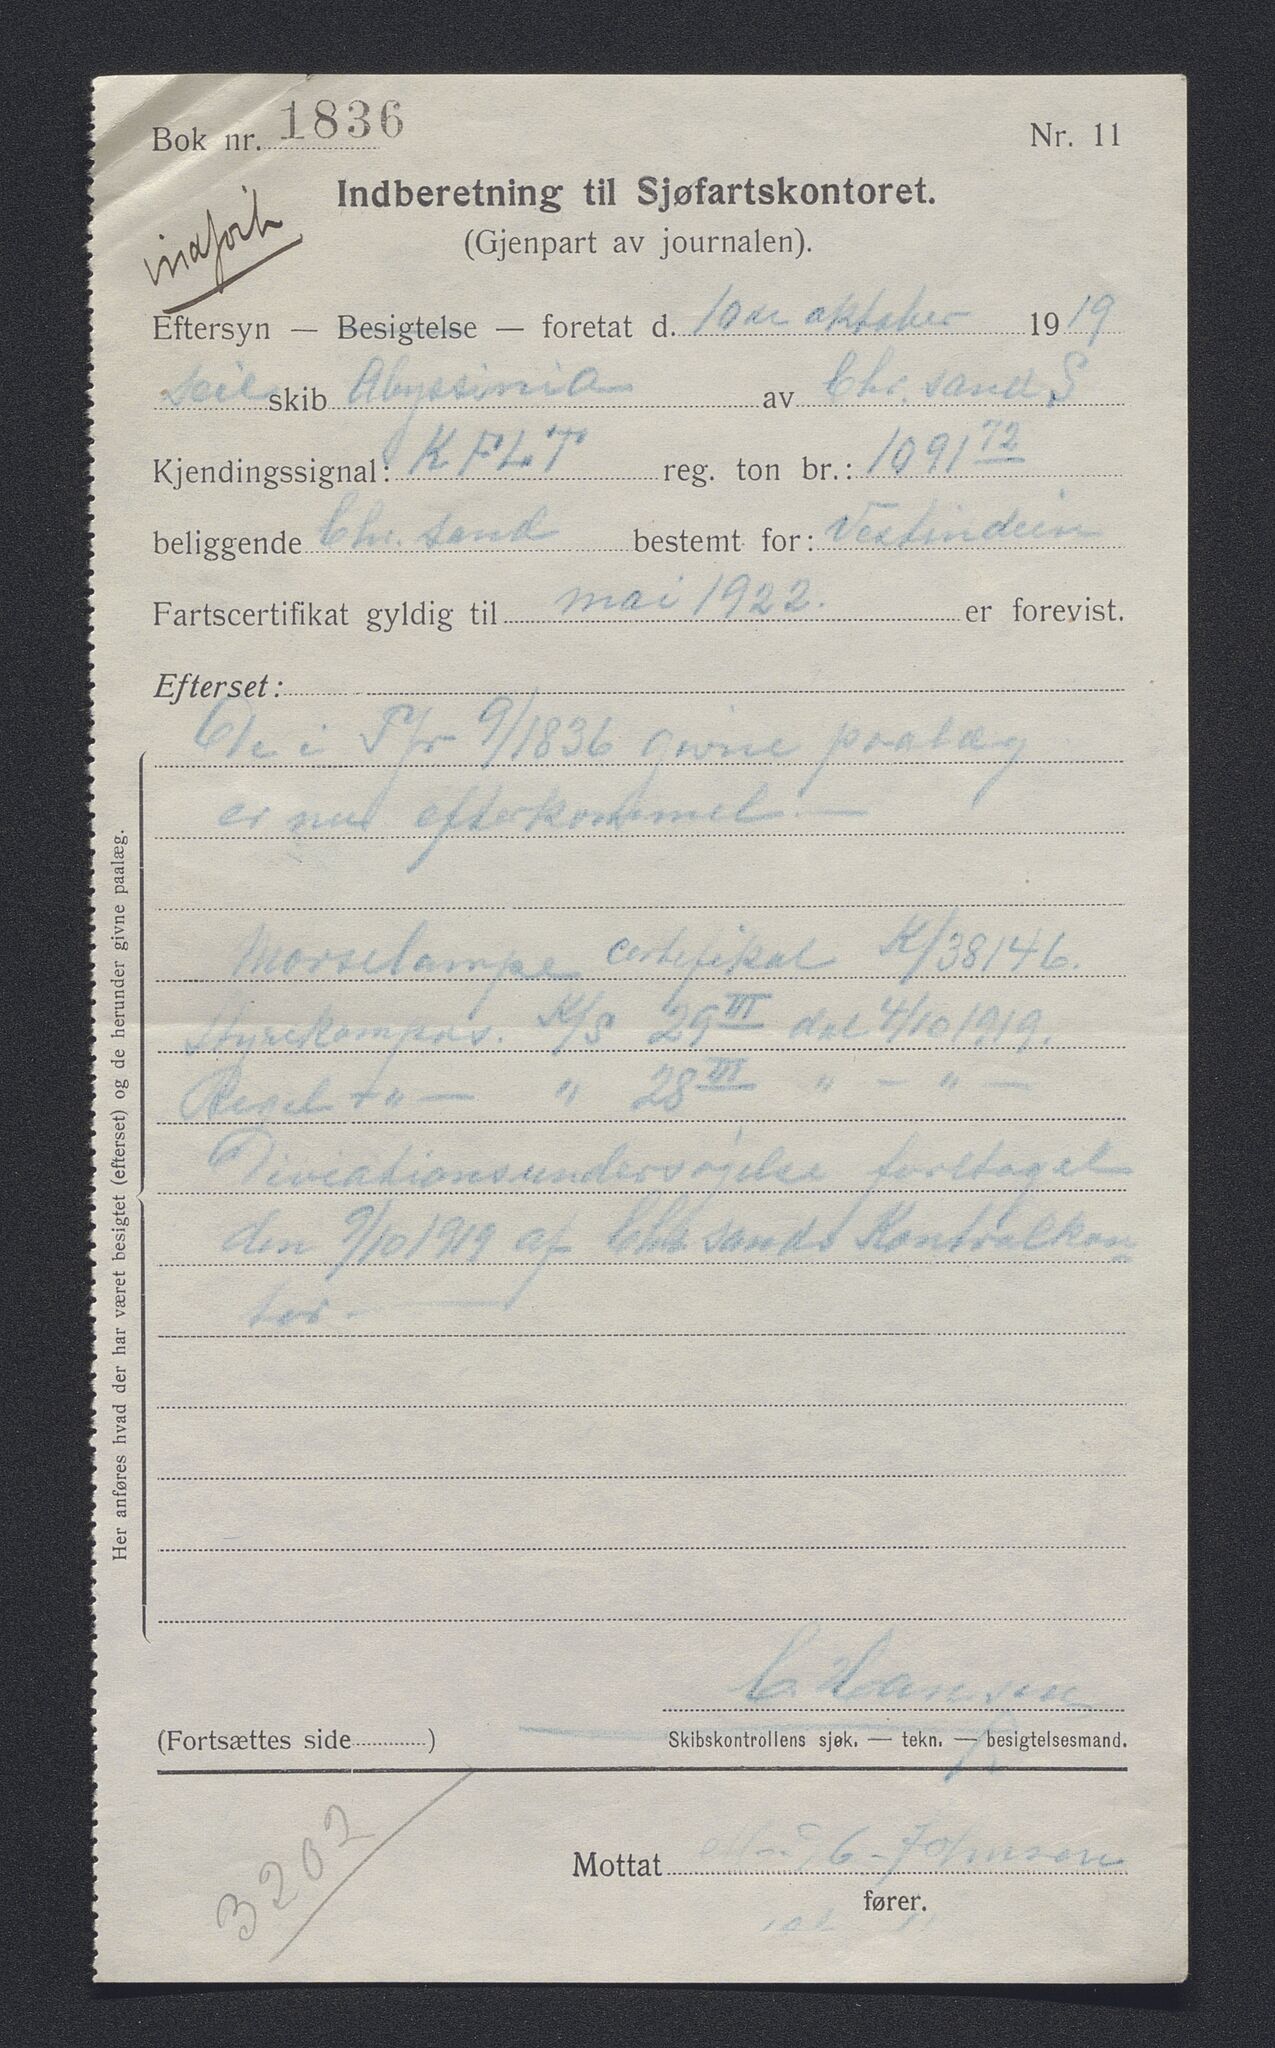 Bok nr. 1836 Nr. 11
Indberetning til Sjøfartskontoret.
(Gjenpart av journalen).
indført
Eftersyn — Besigtelse — foretat d. 10de oktober 1919
seil skib Abyssinia av Chr. sand S
Kjendingssignal: KFLT reg. ton br.: 1091 72
beliggende Chr. sand bestemt for: Vestindien
Fartscertifikat gyldig til mai 1922. er forevist.
Efterset:
De i 9/1836 givne paalæg
er nu efterkommet. —
Morselampe certifikat K/38146.
Styrekompas. K/S 29 III dat 4/10 1919.
Regel — " — " 28 III " — " —
Diviationsundersøgelse foretaget
den 9/10 1919 af Chr sands Kontrolkon
tor. —
Her anføres hvad der har været besigtet (efterset) og de herunder givne paalæg.
C. Hansen
(Fortsættes side ) Skibskontrollens sjøk. — tekn. — besigtelsesmand.
3202
Mottat C. Johnsen
fører.